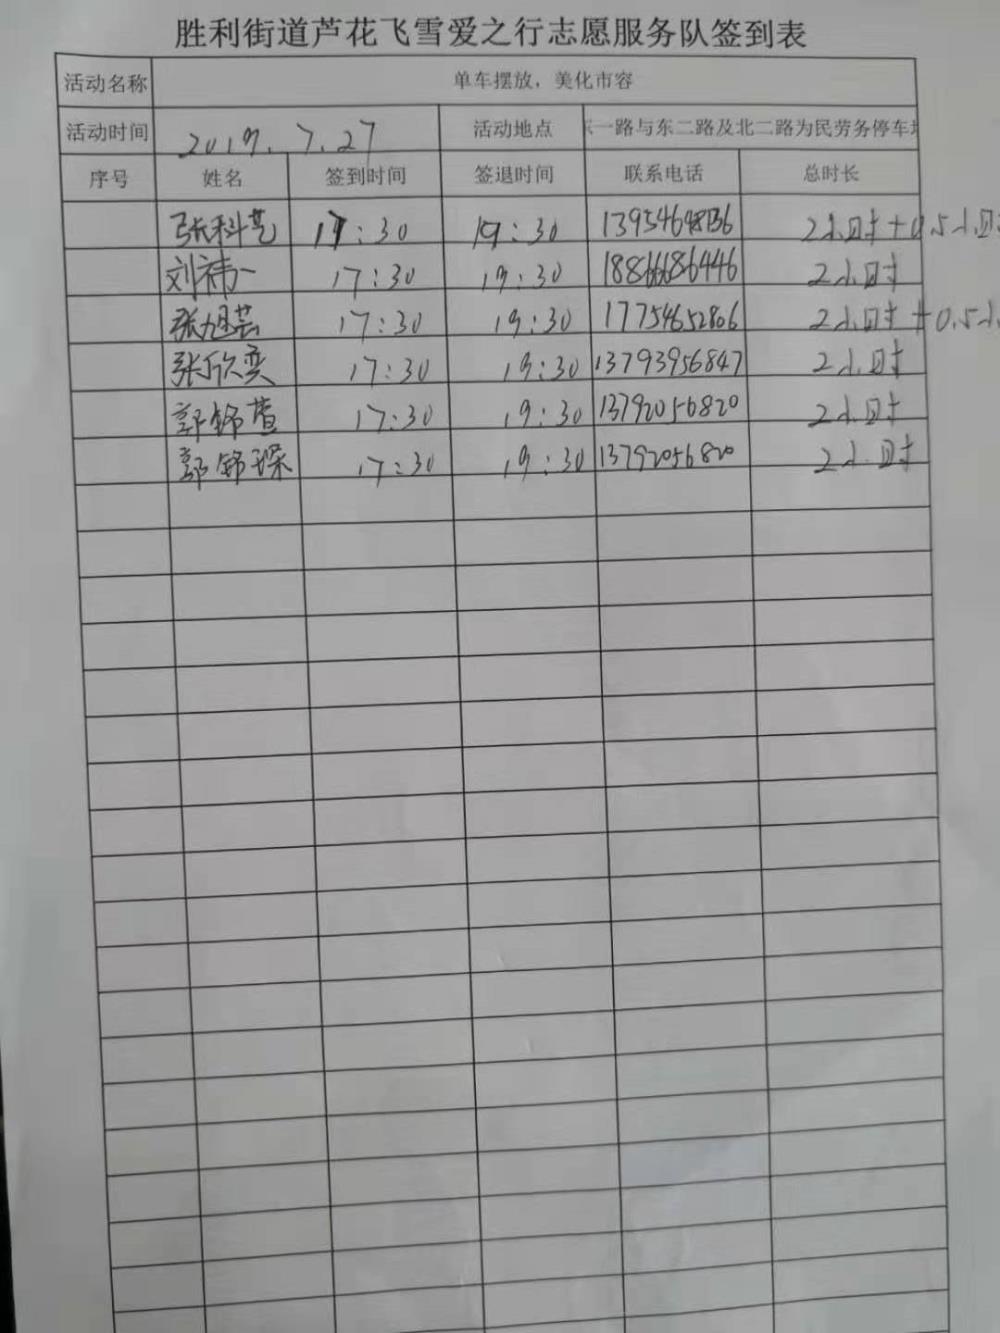 胜利街道芦花飞雪爱之行志愿服务队签到表
活动名称 单车摆放，美化市容
活动时间 2019.7.27 活动地点 东一路与东二路及北二路为民劳务停车场
序号 姓名 签到时间 签退时间 联系电话 总时长
张科艺 17:30 19:30 2小时+0.5小时
刘祎一 17:30 19:30 18866686446 2小时
张旭芸 17:30 19:30 17754652806 2小时+0.5小
张欣奕 17:30 19:30 13793956847 2小时
郭锦萱 17:30 19:30 13792056820 2小时
郭锦琛 17:30 19:30 13792056820 2小时